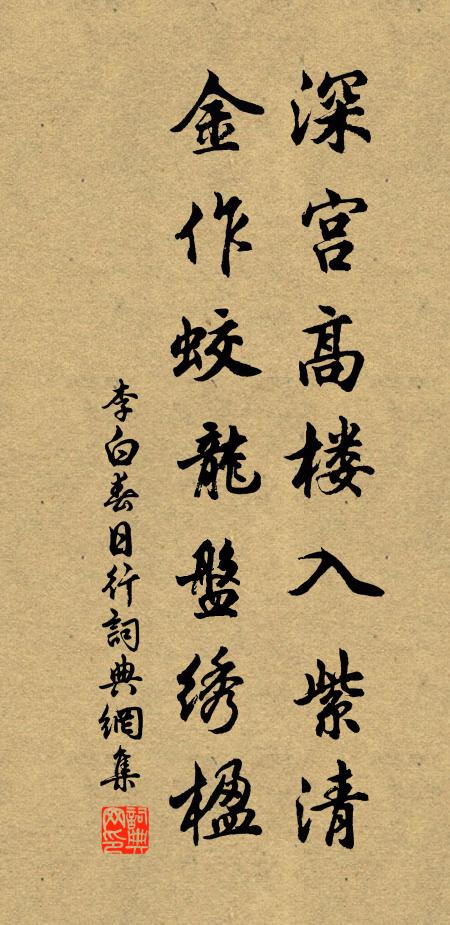 深宫高楼入紫清
金作蛟龍盤绣楹
李白春日行詞典網集
詞典網印